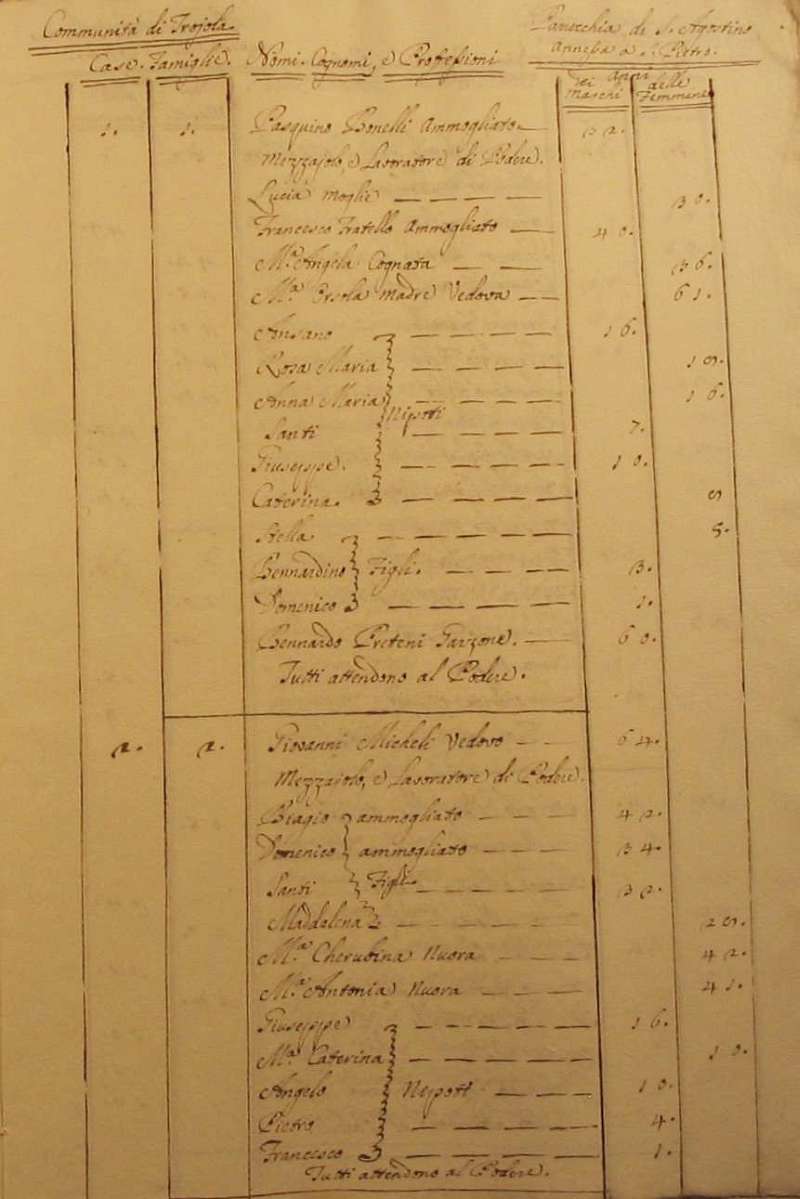 Communità di Trojola.
Parocchia di S. Agostino
Annessa a S. Pietro.
Case. Famiglie. Nomi. Cognomi, e Professioni
Anni
dei Maschi delle Femmine
1. 1. Pasquino Bonelli Ammogliato 52.
Mezzajolo, e Lavoratore di Podere.
Lucia Moglie
Francesco Fratello Ammogliato 40.
M.ª Angela Cognata
M.ª Madre Vedova 61.
Ansano 16.
Rosa Maria
Anna Maria 16.
Nipoti
Santi 7.
Giuseppe. 10.
Caterina.
Stella 5.
Bernardino Figli. 3.
Domenico 1.
Bernardo Garzone. 60.
Tutti attendono al Podere.
2. 2. Giovanni Micheli Vedovo 64.
Mezzajolo, e Lavoratore di Podere.
Biagio ammogliato 42.
Domenico ammogliato 34.
Santi Figli 32.
Maddalena 29.
M.ª Cherubina Nuora 42.
M.ª Antonia Nuora 41.
Giuseppe 16.
M.ª Caterina 10.
Angelo Nepoti 10.
Pietro 4.
Francesco 1.
Tutti attendono al Podere.